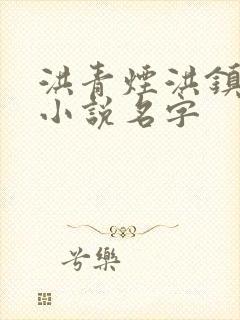 洪青煙洪鎮
小說名字
兮樂